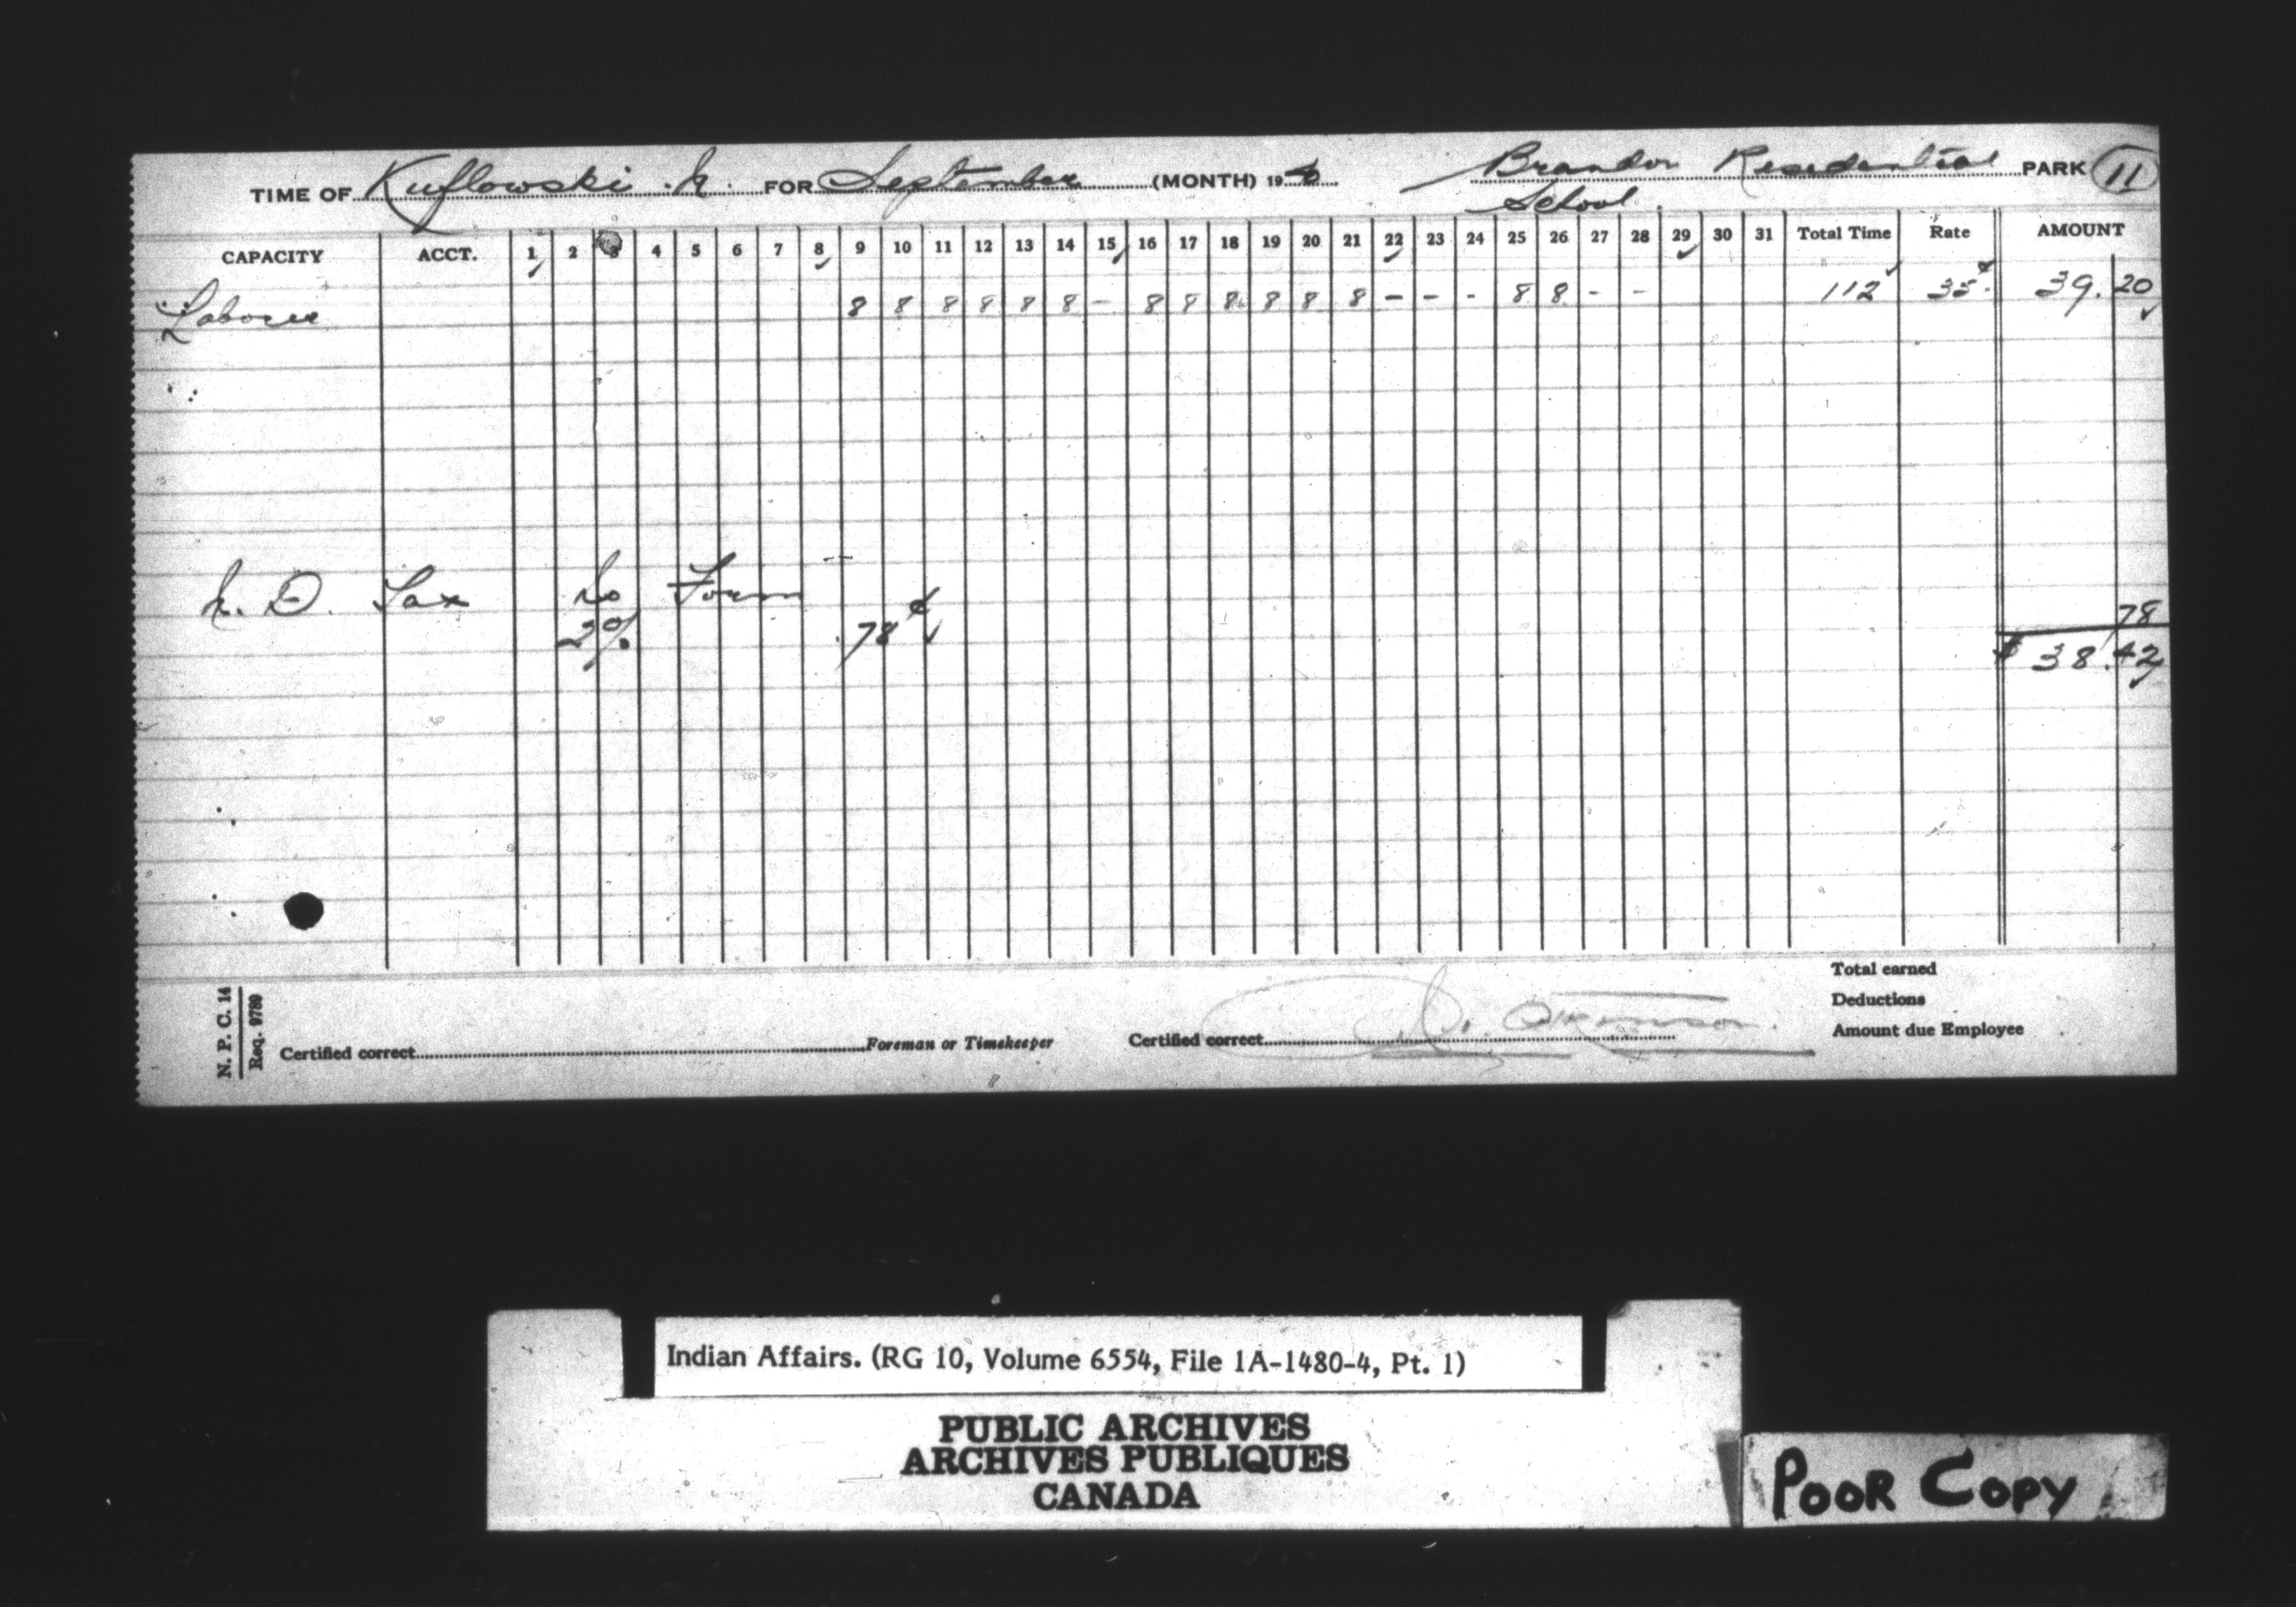 TIME OF Kuflowski N. FOR September (MONTH) 19 40 Brandon Residential PARK 11
School
CAPACITY ACCT. 1 2 3 4 5 6 7 8 9 10 11 12 13 14 15 16 17 18 19 20 21 22 23 24 25 26 27 28 29 30 31 Total Time Rate AMOUNT
Laborer 8 8 8 8 8 8 - 8 8 8 8 8 8 - - - 8 8 - - 112 35¢ 39.20
N. D. Tax No Form
2% .78¢ 78
$ 38.42
Total earned
Deductions
Amount due Employee
Certified correct Foreman or Timekeeper Certified correct
N. P. C. 14
Req. 9789
Indian Affairs. (RG 10, Volume 6554, File 1A-1480-4, Pt. 1)
PUBLIC ARCHIVES
ARCHIVES PUBLIQUES
CANADA
POOR COPY